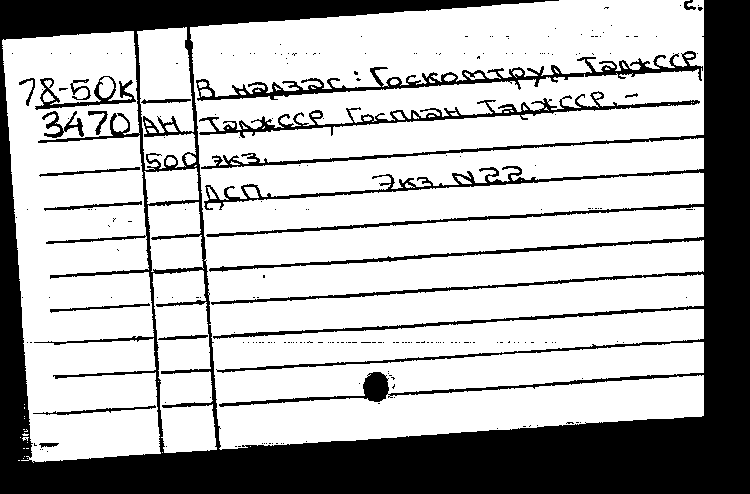 с.
78-50к В надзаг.: Госкомтруд ТаджССР,
3470 АН ТаджССР, Госплан ТаджССР. -
500 экз.
ДСП. Экз. N 22.